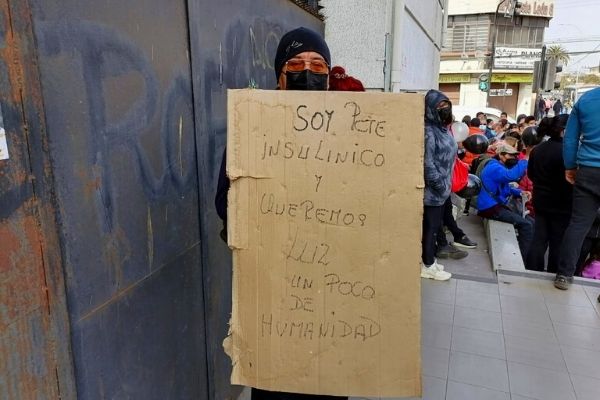 SOY Pete
iNSULiNICO
Y
QUeReMOS
LUZ
UN POCO
DE
HUMANIDAD